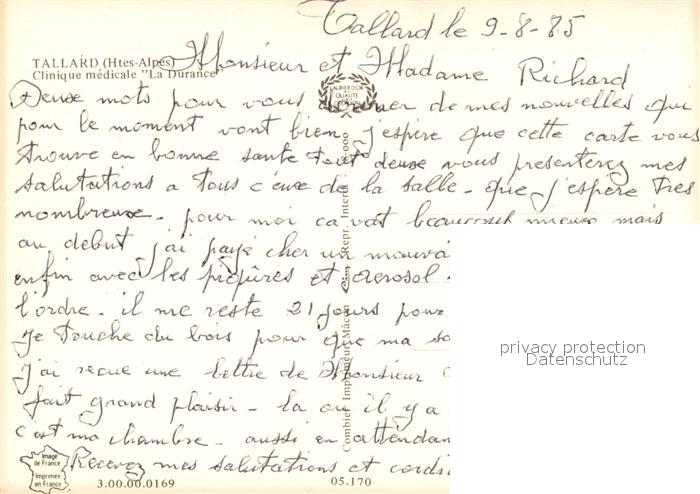 Tallard le 9-8-85
TALLARD (Htes-Alpes)
Clinique médicale "La Durance"
Monsieur et Madame Richard
Deux mots pour vous donner de mes nouvelles qui
pour le moment vont bien j'espère que cette carte vous
trouve en bonne sante tout deux vous presenterez mes
salutations a tous c'eux de la salle - que j'espère tres
nombreux - pour moi ca vat beaucoup mieux mais
au debut j'ai payé cher un mauvai
enfin avec les piqures et aerosol
l'ordre - il me reste 21 jours pour
je touche du bois pour que ma
j'ai recue une lettre de Monsieur
fait grand plaisir - la ou il y a
c'est ma chambre - aussi en attendan
Recevez mes salutations et cordi
privacy protection
Datenschutz
Combier Imprimeur Mâcon
Image
de France
Imprimée
en France
3.00.00.0169
05.170